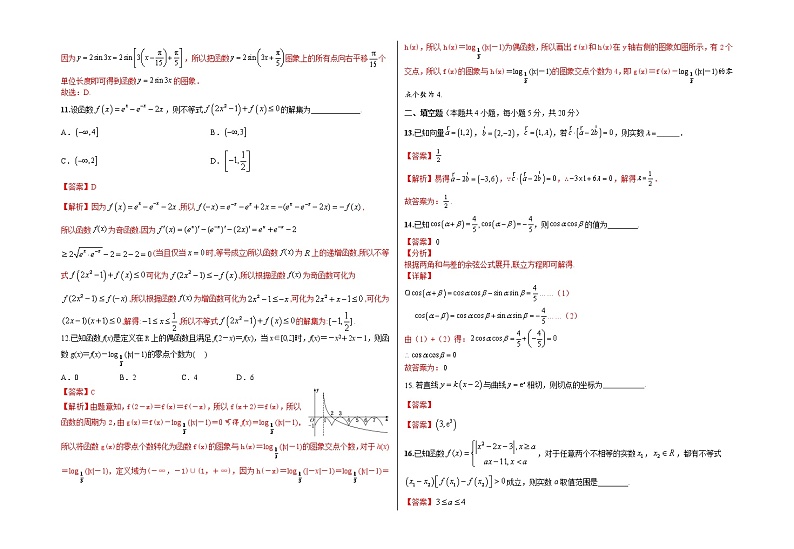 因为 y=2sin3x=2sin[3(x−π/15)+π/5]，所以把函数 y=2sin(3x+π/5) 图象上的所有点向右平移 π/15 个
单位长度即可得到函数 y=2sin3x 的图象.
故选: D.
11.设函数 f(x)=eˣ−e⁻ˣ−2x，则不等式 f(2x²−1)+f(x)≤0 的解集为____________.
A．(−∞,4] B．(−∞,3]
C．(−∞,2] D．[−1,1/2]
【答案】D
【解析】因为 f(x)=eˣ−e⁻ˣ−2x ,所以 f(−x)=e⁻ˣ−eˣ+2x=−(eˣ−e⁻ˣ−2x)=−f(x)，
所以函数 f(x) 为奇函数.因为 f′(x)=(eˣ)′−(e⁻ˣ)′−(2x)′=eˣ+e⁻ˣ−2
≥2√(eˣ·e⁻ˣ)−2=2−2=0 (当且仅当 x=0 时,等号成立)所以函数 f(x) 为 R 上的递增函数,所以不等
式 f(2x²−1)+f(x)≤0 可化为 f(2x²−1)≤−f(x),所以根据函数 f(x) 为奇函数可化为
f(2x²−1)≤f(−x),所以根据函数 f(x) 为增函数可化为 2x²−1≤−x,可化为 2x²+x−1≤0,可化为
(2x−1)(x+1)≤0,解得: −1≤x≤1/2,所以不等式 f(2x²−1)+f(x)≤0 的解集为: [−1,1/2].
12.已知函数 f(x)是定义在 R 上的偶函数且满足 f(2−x)=f(x)，当 x∈[0,1]时，f(x)=−x²+2x−1，则函
数 g(x)=f(x)−log1/3(|x|−1)的零点个数为( )
A．0 B．2 C．4 D．6
【答案】C
【解析】由题意知，f(2−x)=f(x)=f(−x)，所以 f(x+2)=f(x)，所以
函数的周期为 2，由 g(x)=f(x)−log1/3(|x|−1)=0 可得 f(x)=log1/3(|x|−1)，
所以将函数 g(x)的零点个数转化为函数 f(x)的图象与 h(x)=log1/3(|x|−1)的图象交点个数，对于 h(x)
=log1/3(|x|−1)，定义域为(−∞，−1)∪(1，+∞)，因为 h(−x)=log1/3(|−x|−1)=log1/3(|x|−1)=
h(x)，所以 h(x)=log1/3(|x|−1)为偶函数，所以画出 f(x)和 h(x)在 y 轴右侧的图象如图所示，有 2 个
交点，所以 f(x)的图象与 h(x)=log1/3(|x|−1)的图象交点个数为 4，即 g(x)=f(x)−log1/3(|x|−1)的零
点个数为 4.
二、填空题（本题共 4 小题，每小题 5 分，共 20 分）
13.已知向量 a=(1,2)，b=(2,−2)，c=(1,λ)，若 c·(a−2b)=0，则实数 λ=______．
【答案】1/2
【解析】易得 a−2b=(−3,6)，∵c·(a−2b)=0，∴−3×1+6λ=0，解得 λ=1/2．
故答案为: 1/2．
14.已知 cos(α+β)=4/5, cos(α−β)=−4/5，则 cosαcosβ 的值为________.
【答案】0
【分析】
根据两角和与差的余弦公式展开,联立方程即可解得
【详解】
Q cos(α+β)=cosαcosβ−sinαsinβ=4/5……（1）
cos(α−β)=cosαcosβ+sinαsinβ=−4/5……（2）
由（1）+（2）得: 2cosαcosβ=4/5+(−4/5)=0
∴cosαcosβ=0
故答案为: 0
15. 若直线 y=k(x−2) 与曲线 y=eˣ 相切，则切点的坐标为___________.
【答案】
【答案】(3,e³)
16.已知函数 f(x)={|x²−2x−3|,x≥a ax−11,x<a，对于任意两个不相等的实数 x₁，x₂∈R，都有不等式
(x₁−x₂)[f(x₁)−f(x₂)]>0 成立，则实数 a 取值范围是________.
【答案】3≤a≤4